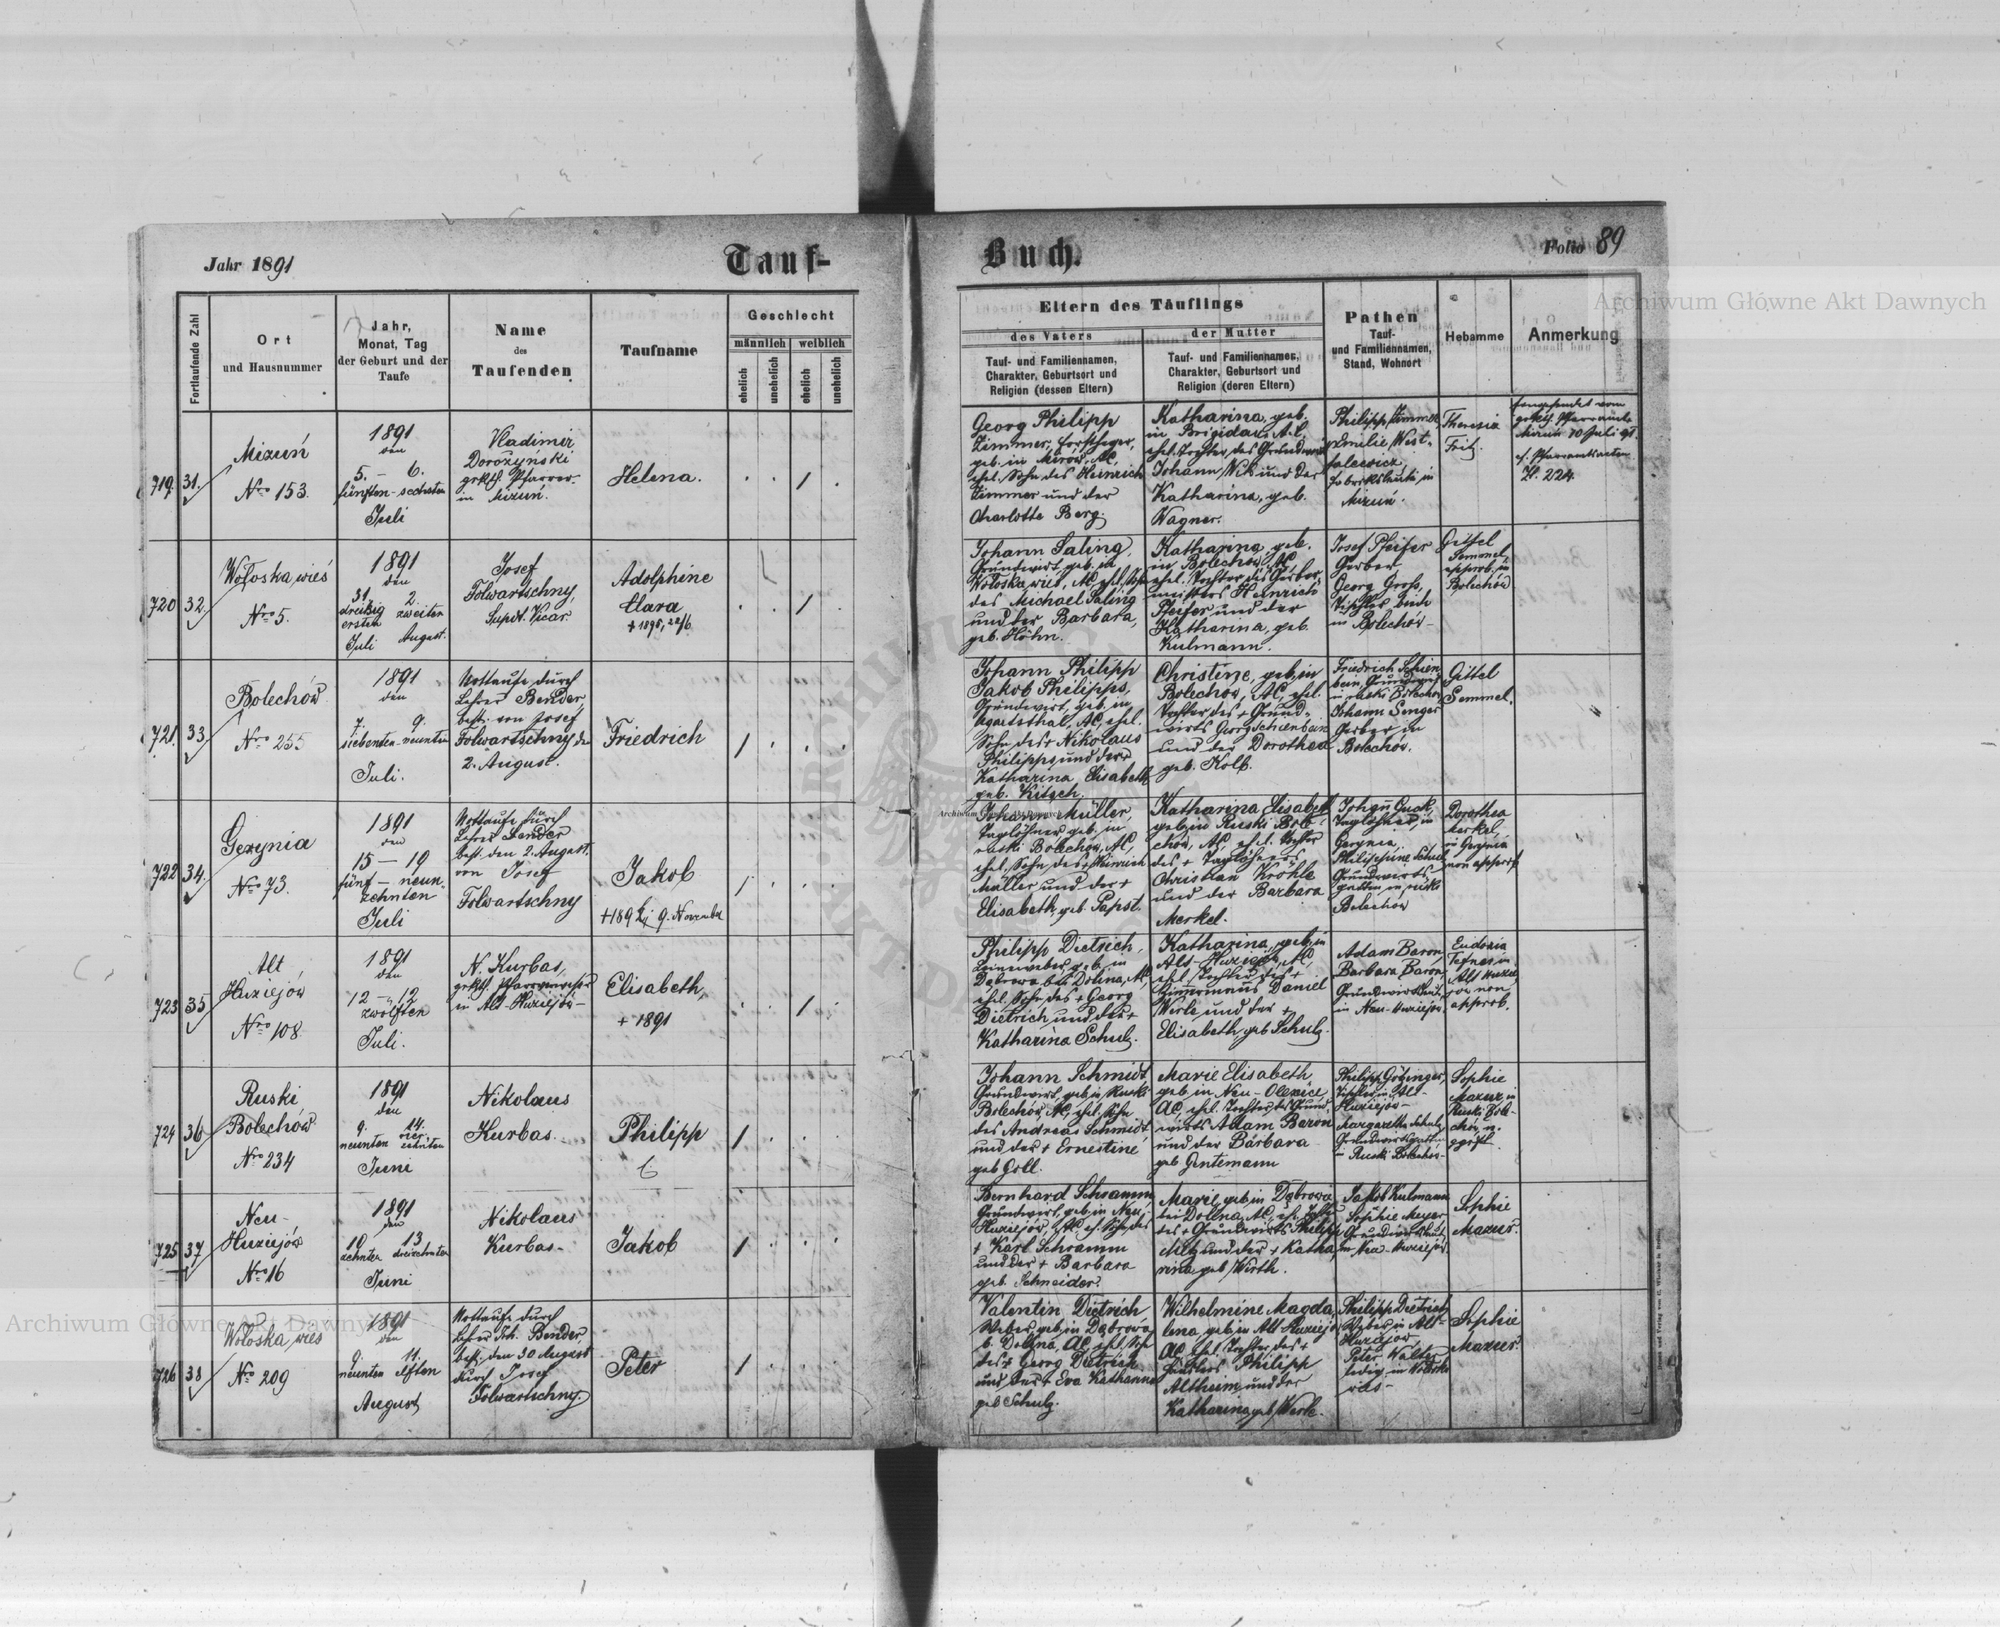 Jahr 1891
Tauf-
Buch.
Folio 89
Fortlaufende Zahl
Ort
und Hausnummer
Jahr,
Monat, Tag
der Geburt und der
Taufe
Name
des
Taufenden
Taufname
Geschlecht
männlich weiblich
ehelich
unehelich
ehelich
unehelich
Eltern des Täuflings
des Vaters
Tauf- und Familiennamen,
Charakter, Geburtsort und
Religion (dessen Eltern)
der Mutter
Tauf- und Familiennamen,
Charakter, Geburtsort und
Religion (deren Eltern)
Pathen
Tauf-
und Familiennamen,
Stand, Wohnort
Hebamme
Anmerkung
719. 31.
Mizuń
Nro 153.
1891
den
5. - 6.
fünften - sechsten
Juli
Vladimir
Dorożyński
grkth. Pfarrer
in Mizun.
Helena.
Georg Philipp
Zimmer, Forstheger,
geb. in
ehel. Sohn des Heinrich
Zimmer und der
Charlotte Berg.
Katharina, geb.
in Brigidau, A.C,
ehel. Tochter des Grundwirts
Johann und der
Katharina, geb.
Wagner.
Philipp Zimmer
Emilie West-
falewicz
Fabriksleute in
Mizuń.
Theresia
Fritz.
Eingesendet vom
grkth. Pfarramte
Mizuń 10 Juli 91.
cf. Pfarramtsacten
Zl. 224.
720 32.
Wołoska wieś
Nro 5.
1891
den
31. 2.
dreißig zweiten
ersten
Juli August.
Josef
Folwartschny,
Supdt. Vicar.
Adolphine
Clara
+ 1895, 22/6.
Johann Saling,
Grundwirt, geb. in
Wołoska wieś, AC, ehel. Sohn
des Michael Saling
und der Barbara,
geb. Höhn.
Katharina, geb.
in Bolechów, AC,
ehel. Tochter des Gerber-
meisters Heinrich
Pfeifer und der
Katharina, geb.
Kulmann.
Josef Pfeifer
Gerber
Georg Gross,
Tischler beide
in Bolechów -
Gittel
Semmel
approb. in
Bolechów
721. 33.
Bolechów
Nro 255
1891
den
7. 9.
siebenten - neunten
Juli.
Nottaufe durch
Lehrer Bender,
best. von Josef
Folwartschny den
2. August.
Friedrich
Johann Philipp
Jakob Philipps,
Grundwirt, geb. in
AC, ehel.
Sohn des + Nikolaus
Philipps und der +
Katharina Elisabeth
geb. Kitsch.
Christine, geb. in
Bolechów, AC, ehel.
Tochter des + Grund-
wirts Georg Schienbein
und der Dorothea
geb. Kolb.
Friedrich Schien
bein, Grundwirt
in ruski Bolechów
Johann Singer
Gerber in
Bolechów.
Gittel
Semmel.
722 34.
Gerynia
Nro 73.
1891
den
15 - 19
fünf - neun-
zehnten
Juli
Nottaufe durch
Lehrer Bender
best. den 2. August.
von Josef
Folwartschny
Jakob
9. November
Johann Müller,
Taglöhner, geb. in
ruski Bolechów, AC,
ehel. Sohn des + Heinrich
Müller und der +
Elisabeth, geb. Papst.
Katharina Elisabeth
geb. in Ruski Bole-
chów, AC, ehel. Tochter
des + Taglöhners
Christian Kröhle
und der Barbara
Merkel.
Johann
Taglöhner, in
Gerynia
Philippine Schul
Grundwirts-
gattin in ruski
Bolechów
Dorothea
Merkel,
in Gerynia
non approb
723 35
Alt
Huziejów
Nro 108.
1891
den
12 - 12
zwölften
Juli.
N. Kurbas,
grkth. Pfarrverweser
in Alt-Huziejów -
Elisabeth,
+ 1891
Philipp Dietrich,
Leineweber, geb. in
Dąbrowa bei Dolina, AC,
ehel. Sohn des + Georg
Dietrich und der +
Katharina Schulz.
Katharina, geb. in
Alt-Huziejów, AC,
ehel. Tochter des +
Zimmermanns Daniel
Werle und der +
Elisabeth, geb. Schulz.
Adam Baron,
Barbara Baron,
Grundwirtsleute
in Neu-Huziejów.
Eudoxia
in
Alt Huzie-
jów non
approb.
724 36
Ruski
Bolechów
Nro 234
1891
den
9. 14.
neunten vier-
zehnten
Juni
Nikolaus
Kurbas.
Philipp
Johann Schmidt
Grundwirt, geb. in Ruski
Bolechów AC, ehel. Sohn
des Andreas Schmidt
und der + Ernestine
geb. Goll.
Marie Elisabeth
geb. in Neu-Oleksice
AC, ehel. Tochter des Grund-
wirts Adam Beron
und der Barbara
geb. Gentemann
Philipp Götzinger,
Tischler in Alt-
Huziejów -
Margaretha Schulz
Grundwirtsgattin
- Ruski Bolechów -
Sophie
Mazur in
Ruski Bole-
chów, n.
gprft.
725 37
Neu-
Huziejów
Nro 16
1891
den
10 13.
zehnten dreizehnten
Juni
Nikolaus
Kurbas -
Jakob
Bernhard Schramm
Grundwirt, geb. in Neu-
Huziejów, AC, eh. Sohn des
+ Karl Schramm
und der + Barbara
geb. Schneider.
Marie, geb. in Dąbrowa
bei Dolina, AC, eh. Tochter
des + Grundwirts Philipp
und der + Katha
rina, geb. Wirth.
Jakob Kulmann
Sophie Meyer
Grundwirtsleute
in Neu-Huziejów.
Sophie
Mazur.
726 38
Wołoska wies
Nro 209
1891
den
9. 11.
neunten elften
August
Nottaufe durch
Lehrer Joh. Bender,
best. den 30 August
durch Josef
Folwartschny.
Peter
Valentin Dietrich
Weber, geb. in Dąbrowa
b. Dolina, AC, ehel. Sohn
des + Georg Dietrich
und der + Eva Katharina
geb. Schulz.
Wilhelmine Magda
lena, geb. in Alt Huziejów
AC, ehel. Tochter des +
Philipp
Altheim und der
Katharina, geb. Werle.
Philipp Dietrich,
Weber in Alt-
Huziejów
Peter Walter
ledig, in Wołoska
wies -
Sophie
Mazur.
Archiwum Główne Akt Dawnych
Archiwum Główne Akt Dawnych
Archiwum Główne Akt Dawnych